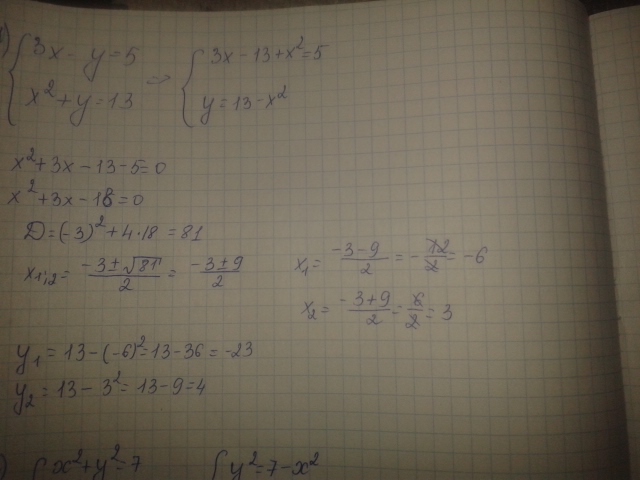 ) { 3x - y = 5 => { 3x - 13 + x² = 5
x² + y = 13 y = 13 - x²
x² + 3x - 13 - 5 = 0
x² + 3x - 18 = 0
D = (-3)² + 4·18 = 81
x₁;₂ = (-3 ± √81)/2 = (-3 ± 9)/2
x₁ = (-3 - 9)/2 = -12/2 = -6
x₂ = (-3 + 9)/2 = 6/2 = 3
y₁ = 13 - (-6)² = 13 - 36 = -23
y₂ = 13 - 3² = 13 - 9 = 4
) { x² + y² = 7 { y² = 7 - x²